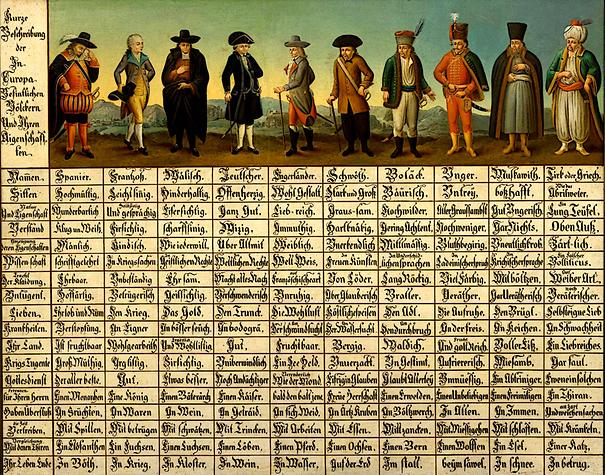 Kurze
Beschreibung
der
In
Europa
Befintlichen
Völckern
Und Ihren
Aigenschaff-
ten.
Namen. Spanier. Frantzoß. Wälisch. Teutscher. Engerländer. Schwöth. Boläck. Unger. Muskawith. Tirk oder Griech.
Sitten Hochmüttig. Leichtsinig. Hinderhaltig. Offenherzig. Wohl Gestalt. Starck und Groß Bäurisch. Untrey. boßhafft.
Und Eigenschaft Wunderbarlich Und gesprächig Eifersichtig. Ganz Gut. Lieb-reich. Graus-sam. Hochwilder. Aller Graussambst. Gut Ungerisch. Lung Teüfel.
Verstand Klug un Weiß. Firsichtig. scharffsinig. Wizig. Anmuthig. Hartknäbig Gering Achtent. Nochweniger. Gar Nichts. Oben Auß.
Männlich. Kindisch. Wie iederwill. Über Allmit Weiblich. Unerkendlich Mittlmäsig. Bluthbegirig. Unentlichkrob. Zärt-lich.
Wissenschaft Schrifftgelehrt In Kriegssachen Geistlichen Rechte Weltlichen Rechte Well Weis. Freuen Künsten Ladeinischersprach Krichischersprache Politicus.
Der Klaidung. Ehrbaar. Unbeständig Ehrsam. Macht alles Nach Französchischeart Von Löder. Lang Röckig. Viel Färbig. Mit bölzen. Weiber Art.
Untugent. Hoffärtig. Betrügerisch Geilsichtig. Verschwenderisch Unruhig. Aber Glauberisch Braller. Veräther. Gar Verätherisch Verätherischer.
Lieben. Ehrlob und Rüm Den Krieg. Das Gold. Den Trunck. Die Wohllust Köstlichespeisen Den Adl. Die Aufruhe. Den Brügl. Selbsteigne Lieb
Krankheiten. Verstopfung. An Eigner An bösser seüch. An bodogrä. Der Wassersucht. Den durchbruch An der freis. An Keichen. An Schwachheit
Ihr Land. Ist fruchtbaar Wohlgearbeith Und Wohllistig Gut. Fruchtbaar. Bergig. Waldich. Und gold Reich Voller Eiß. Ein Liebreiches.
Krigs Tugente Groß Müthig. Arglistig. Firsichtig. Unüberwindlich Ein See Held. Unverzackt Un Gestimt. Aufriererisch. Miesamb. Gar faul.
Gottesdienst Der aller beste. Gut. Etwas besser. Noch Andächtiger Wie der Mond Eifrig in Glauben Glaubt Allerley Unmüessig. Ein Abtriniger. Eweneinsolchen
für Ihren Herrn Einen Monarchen Eine König Einen Baterärch Einen Kaiser. bald den balt jene Freie Herrschaft Einen Erwelden Einen Unbeliebigen Einen Freimiligen Ein Thiran.
Haben Überfluß In Früchten An Waren In Wein. In Geträid. An sich Weid. In Ärtz Kruben In Böllwerch. In Allen. In Immen. Und weichensachen
Vertreiben. Mit Spillen. Mit betrügen Mit schwätzen Mit Trincken Mit Arbeiten Mit Essen. Mit zancken Mit Miessigehen Mit schlaffen. Mit Kränkeln.
Mit denen Thiren Ein Elofanthen Ein Fuchsen. Einen Luchsen. Einen Löben. Einen Pferd. Einen Ochsen. Einen Bern Einen Wolffen Ein Esel. Einer Katz.
Ihr Leben Ende In Böth. In Krieg. In Kloster. In Wein. In Wasser. Auf der Erd In stall. beym säwel. In schnee. In betrug.